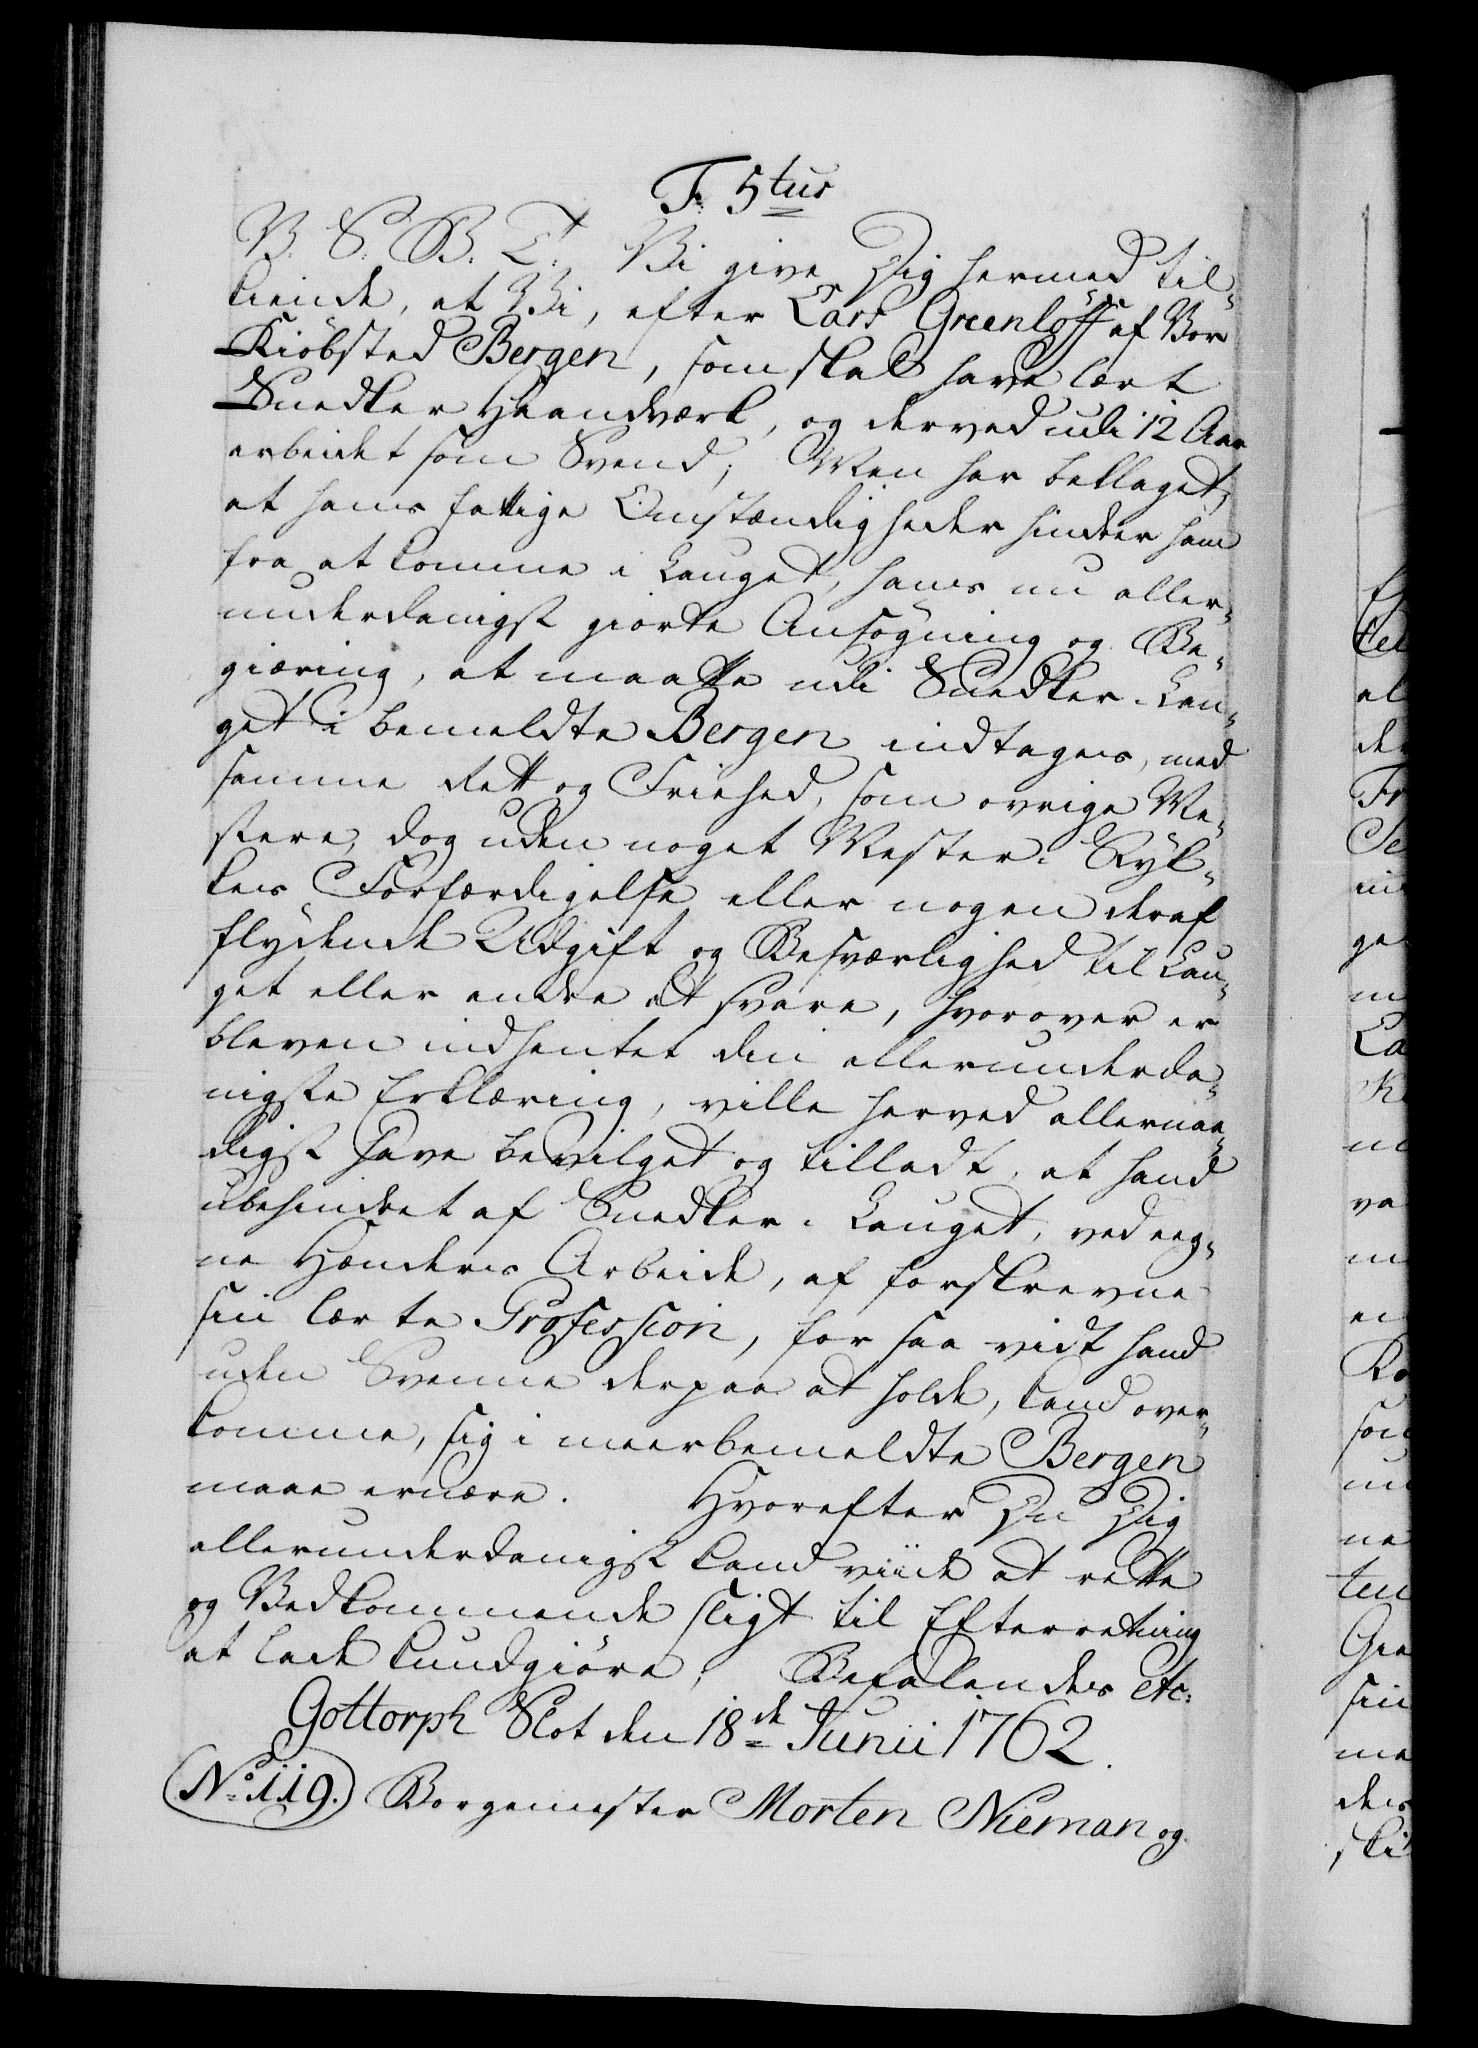 F. 5tus
V. S. B. T. Vi give Dig hermed til-
kiende, at Vi, efter Lars Greenlöff af Vor
Kiöbsted Bergen, som skal have lært
Snedker Haandværk, og derved udi 12 Aar
arbeidet som Svend; Men har beklaget,
at hans fattige Omstændigheder hindrer ham
fra at komme i Lauget, hans nu aller-
underdanigst giorte Ansøgning og Be-
giæring, at maatte udi Snedker-Lau-
get i bemeldte Bergen indtages, med
samme Rett og Friehed, som øvrige Me-
stere, dog uden noget Mester-Styk-
kes Forfærdigelse eller nogen deraf
flydende Udgift og Besværlighed til Lau-
get eller andre at svare, hvorover er
bleven indhentet din allerunderda-
nigste Erklæring, ville herved allernaa-
digst have bevilget og tilladt, at hand
ubehindret af Snedker-Lauget, ved eeg-
ne Hænders Arbeide, af forskrevne
sin lærte Profession, for saa vidt hand
uden Svenne derpaa at holde, kand over-
komme, sig i meerbemeldte Bergen
maae ernære. Hvorefter Du Dig
allerunderdanigst kand viide at rette
og Vedkommende sligt til Efterretning
at lade kundgiøre; Befalendes etc:
Gottorph Slot den 18de Junii 1762.
No. 119. Borgemester Morten Nieman og